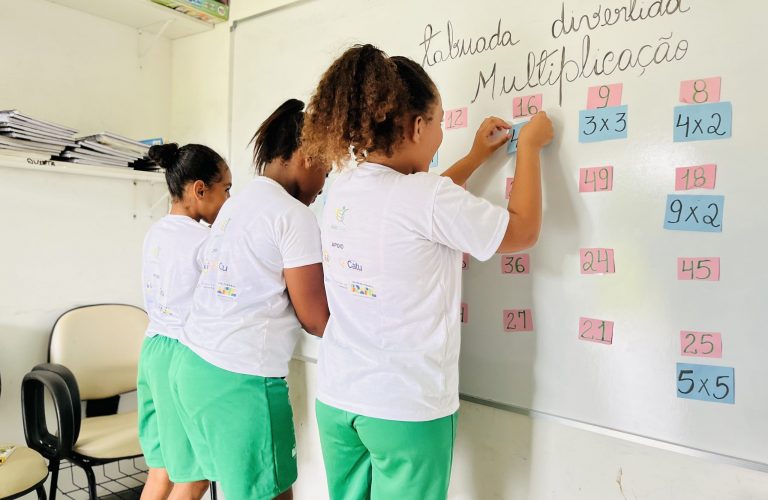 tabuada divertida
Multiplicação
12 16 9 8
3x3 4x2
49 18
9x2
36 24 45
27 21 25
5x5
QUINTA
APOIO
Catu
BRASIL